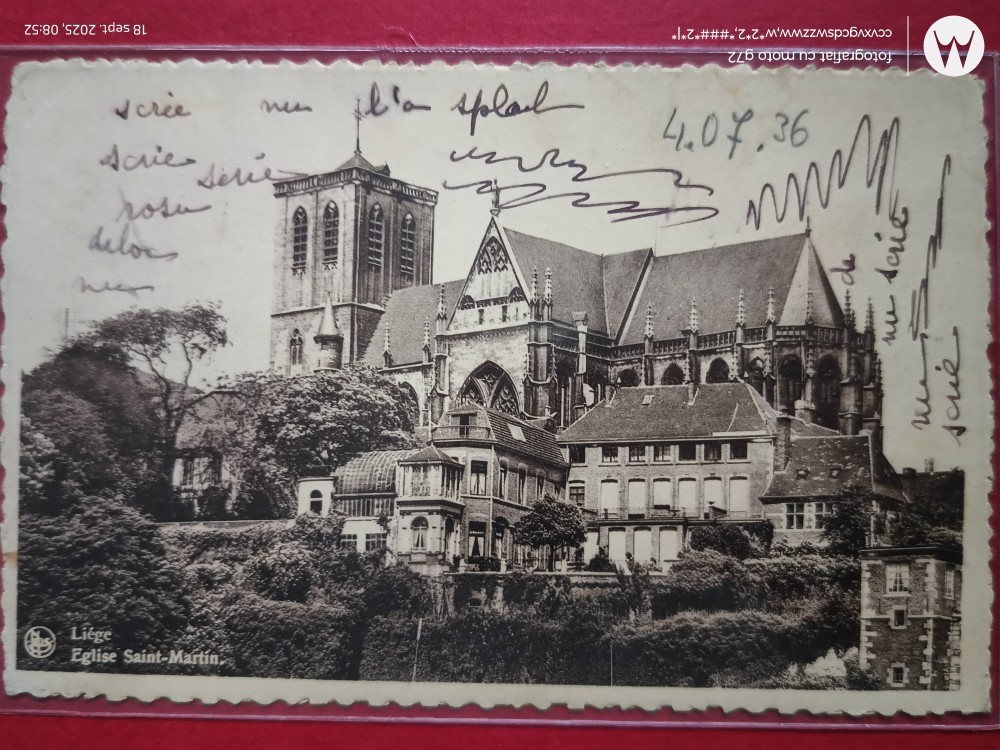 18 sept. 2025, 08:52
fotografiat cu moto g72
ccvxvgcdswzzww,w*2*2,*###*2*|*
scrie nu l'a splal
4.07.36
scrie scrie
nu
de
nu scrie
nu
scrie
Liége
Eglise Saint-Martin.